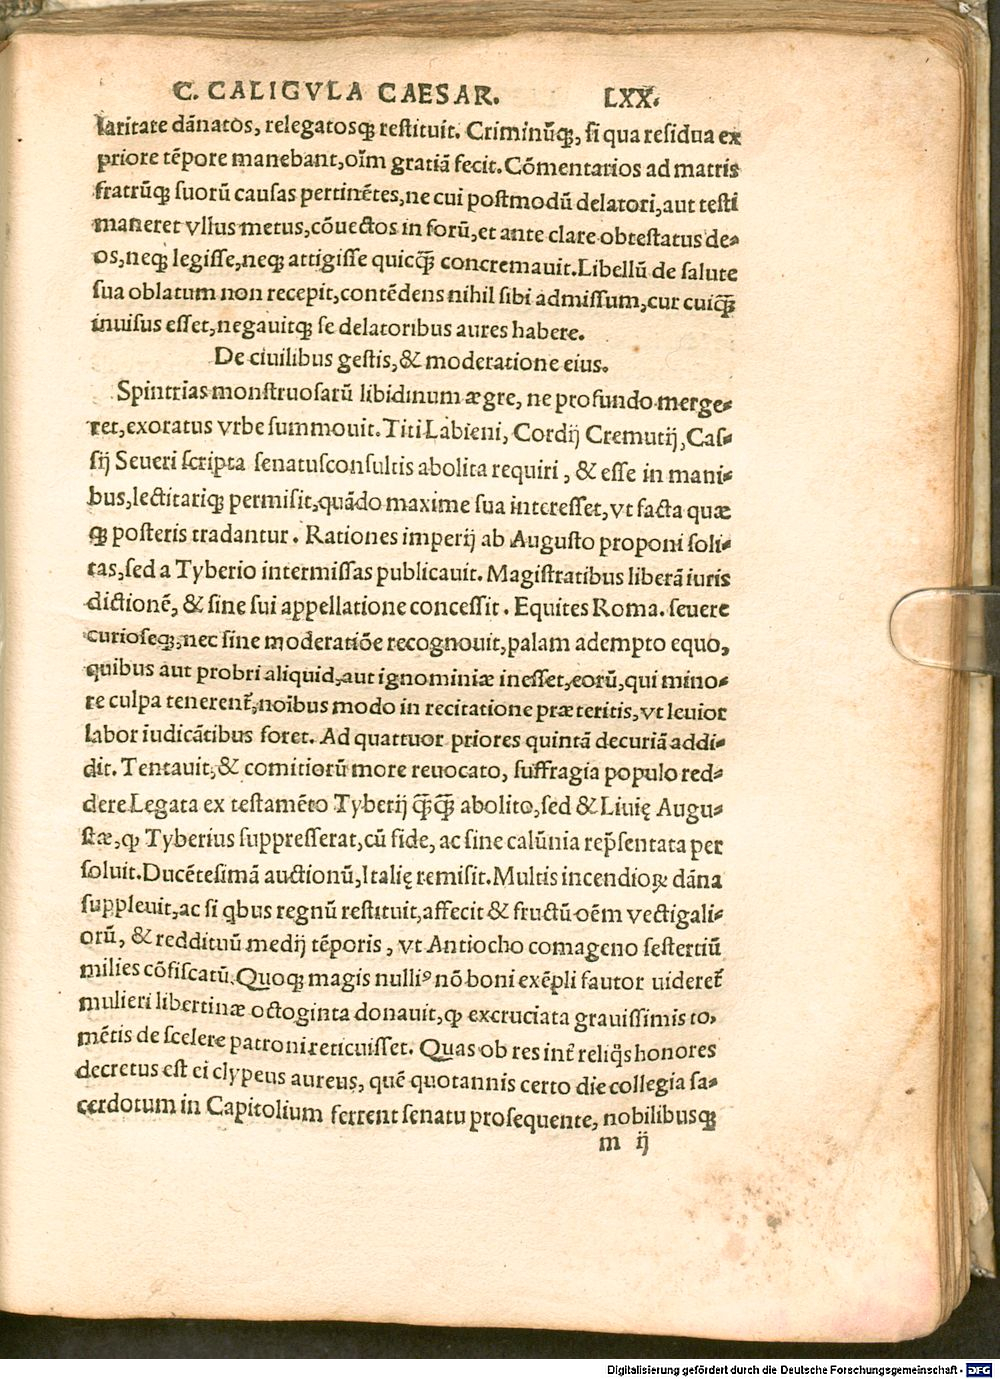 C. CALIGVLA CAESAR. LXX.
laritate dānatos, relegatosq; restituit. Criminūq;, si qua residua ex
priore tēpore manebant, oīm gratiā fecit. Cōmentarios ad matris
fratrūq; suorū causas pertinētes, ne cui postmodū delatori, aut testi
maneret vllus metus, cōuectos in forū, et ante clare obtestatus de-
os, neq; legisse, neq; attigisse quicq̄ concremauit. Libellū de salute
sua oblatum non recepit, contēdens nihil sibi admissum, cur cuiq̄
inuisus esset, negauitq; se delatoribus aures habere.
De ciuilibus gestis, & moderatione eius.
Spintrias monstruosarū libidinum ægre, ne profundo merge-
ret, exoratus vrbe summouit. Titi Labieni, Cordij Cremutij, Cas-
sij Seueri scripta senatusconsultis abolita requiri, & esse in mani-
bus, lectitariq; permisit, quādo maxime sua interesset, vt facta quæ
q; posteris tradantur. Rationes imperij ab Augusto proponi soli-
tas, sed a Tyberio intermissas publicauit. Magistratibus liberā iuris
dictionē, & sine sui appellatione concessit. Equites Roma. seuere
curioseq;, nec sine moderatiōe recognouit, palam adempto equo,
quibus aut probri aliquid, aut ignominiæ inesset, eorū, qui mino-
re culpa tenerent̄, noībus modo in recitatione præteritis, vt leuior
labor iudicātibus foret. Ad quattuor priores quintā decuriā addi-
dit. Tentauit, & comitiorū more reuocato, suffragia populo red-
dere Legata ex testamēto Tyberij q̄q̄ abolito, sed & Liuię Augu-
stæ, ꝙ Tyberius suppresserat, cū fide, ac sine calūnia rep̄sentata per
soluit. Ducētesimā auctionū, Italię remisit. Multis incendioꝝ dāna
suppleuit, ac si qbus regnū restituit, affecit & fructū oēm vectigali-
orū, & reddituū medij tēporis, vt Antiocho comageno sestertiū
milies cōfiscatū. Quoq; magis nulliꝰ nō boni exēpli fautor uideret̄
mulieri libertinæ octoginta donauit, ꝙ excruciata grauissimis to,
mētis de scelere patroni reticuisset. Quas ob res int̄ reliq̄s honores
decretus est ei clypeus aureus, quē quotannis certo die collegia sa-
cerdotum in Capitolium ferrent senatu prosequente, nobilibusq;
m ij
Digitalisierung gefördert durch die Deutsche Forschungsgemeinschaft - DFG